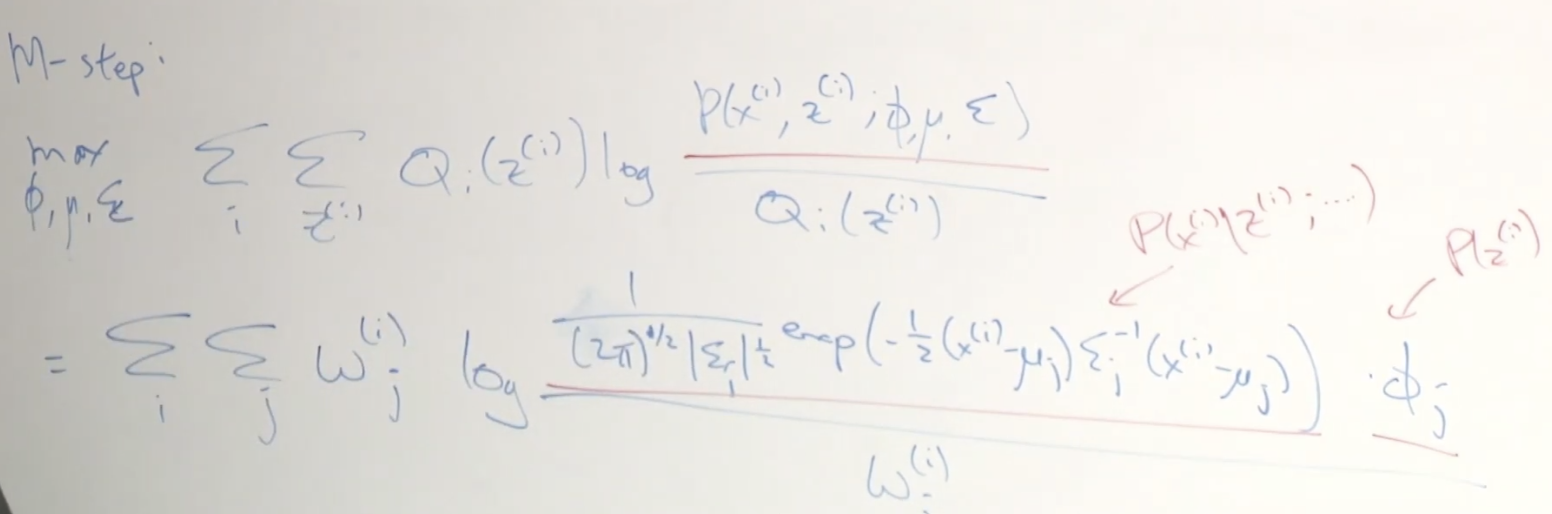 M-step:
max_{φ,μ,Σ} Σ_i Σ_{z^{(i)}} Q_i(z^{(i)}) log \frac{P(x^{(i)}, z^{(i)}; φ, μ, Σ)}{Q_i(z^{(i)})}
P(x^{(i)}|z^{(i)}; ...) P(z^{(i)})
= Σ_i Σ_j w_j^{(i)} log \frac{\frac{1}{(2π)^{d/2} |Σ_j|^{1/2}} exp(-\frac{1}{2}(x^{(i)}-μ_j) Σ_j^{-1} (x^{(i)}-μ_j)) · φ_j}{w_j^{(i)}}